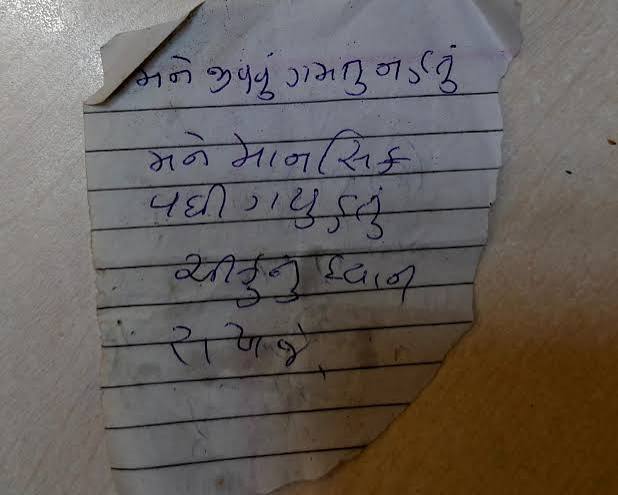 મને જીવવું ગમતુ નહતું
મને માનસિક
વધી ગયુ હતું
ચીકુનું ધ્યાન
રાખજે